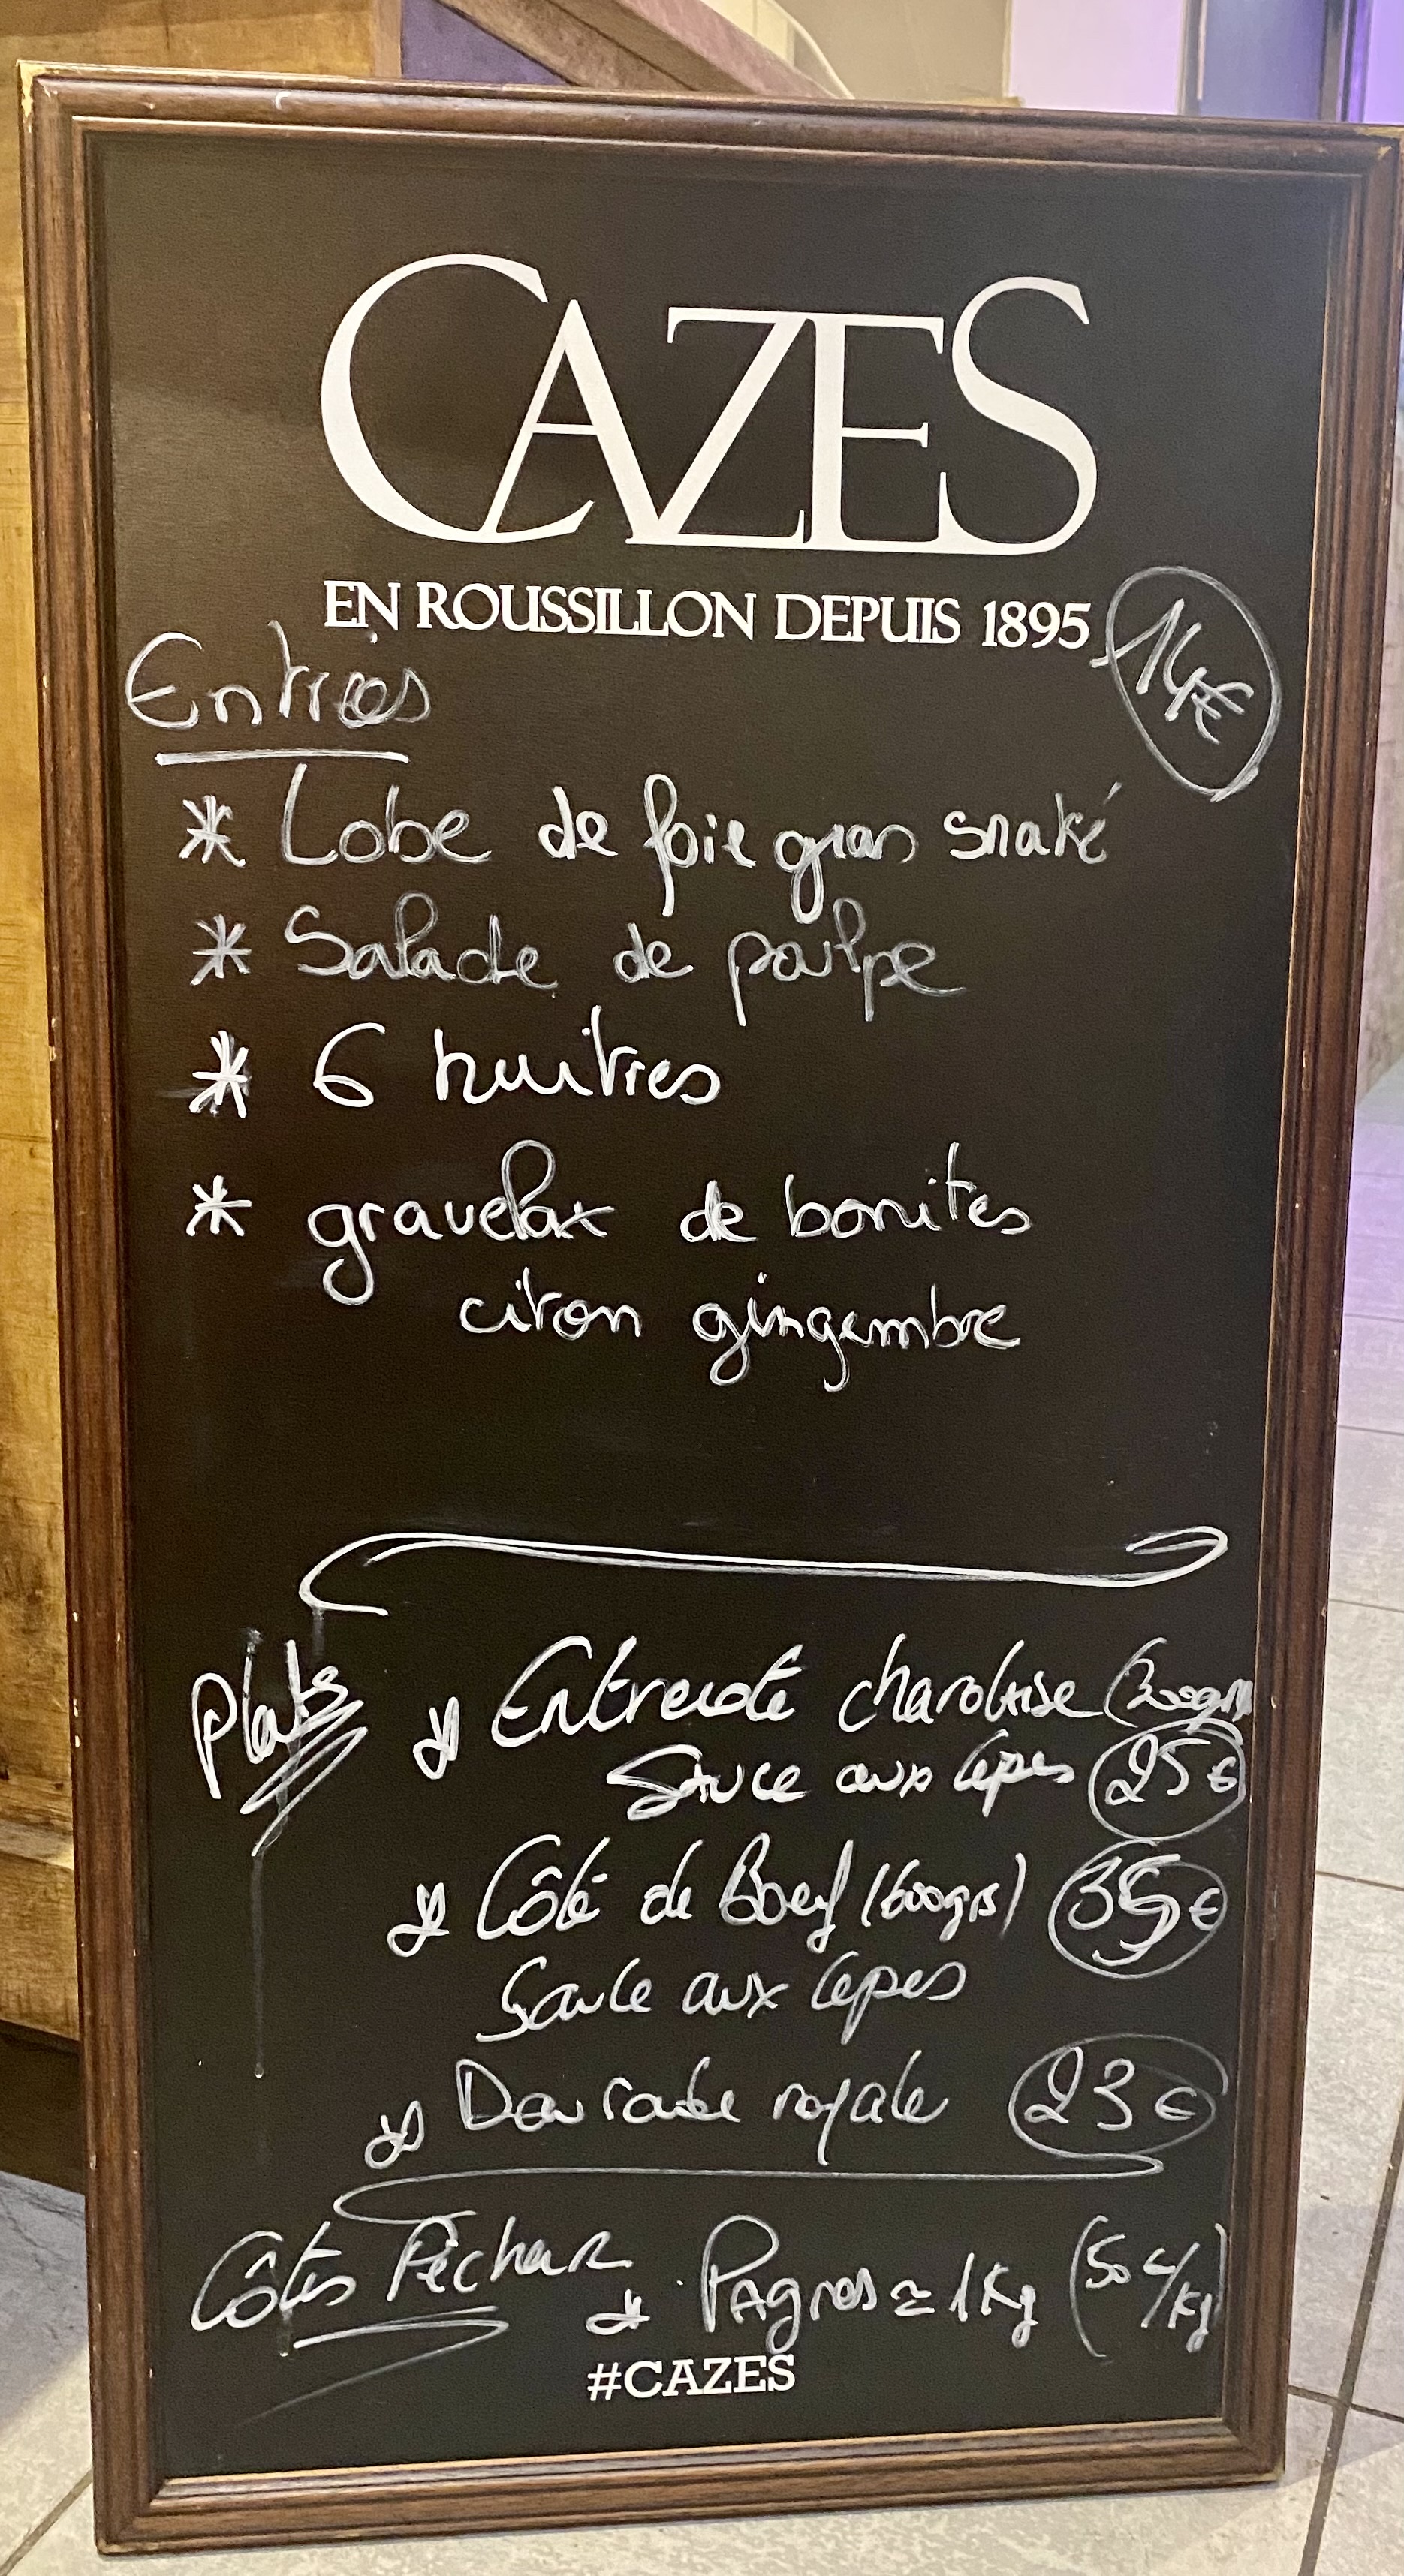 CAZES
EN ROUSSILLON DEPUIS 1895
14€
Entrées
* Lobe de foie gras snaké
* Salade de poulpe
* 6 huitres
* gravelax de bonites
citron gingembre
Plats
* Entrecote charolaise (300grs
Sauce aux cèpes 25€
* Côte de Boeuf (600grs) 35€
Sauce aux cèpes
* Daurade royale 23€
Côtés Pécheur * Pagres ≈ 1Kg (50€/Kg)
#CAZES